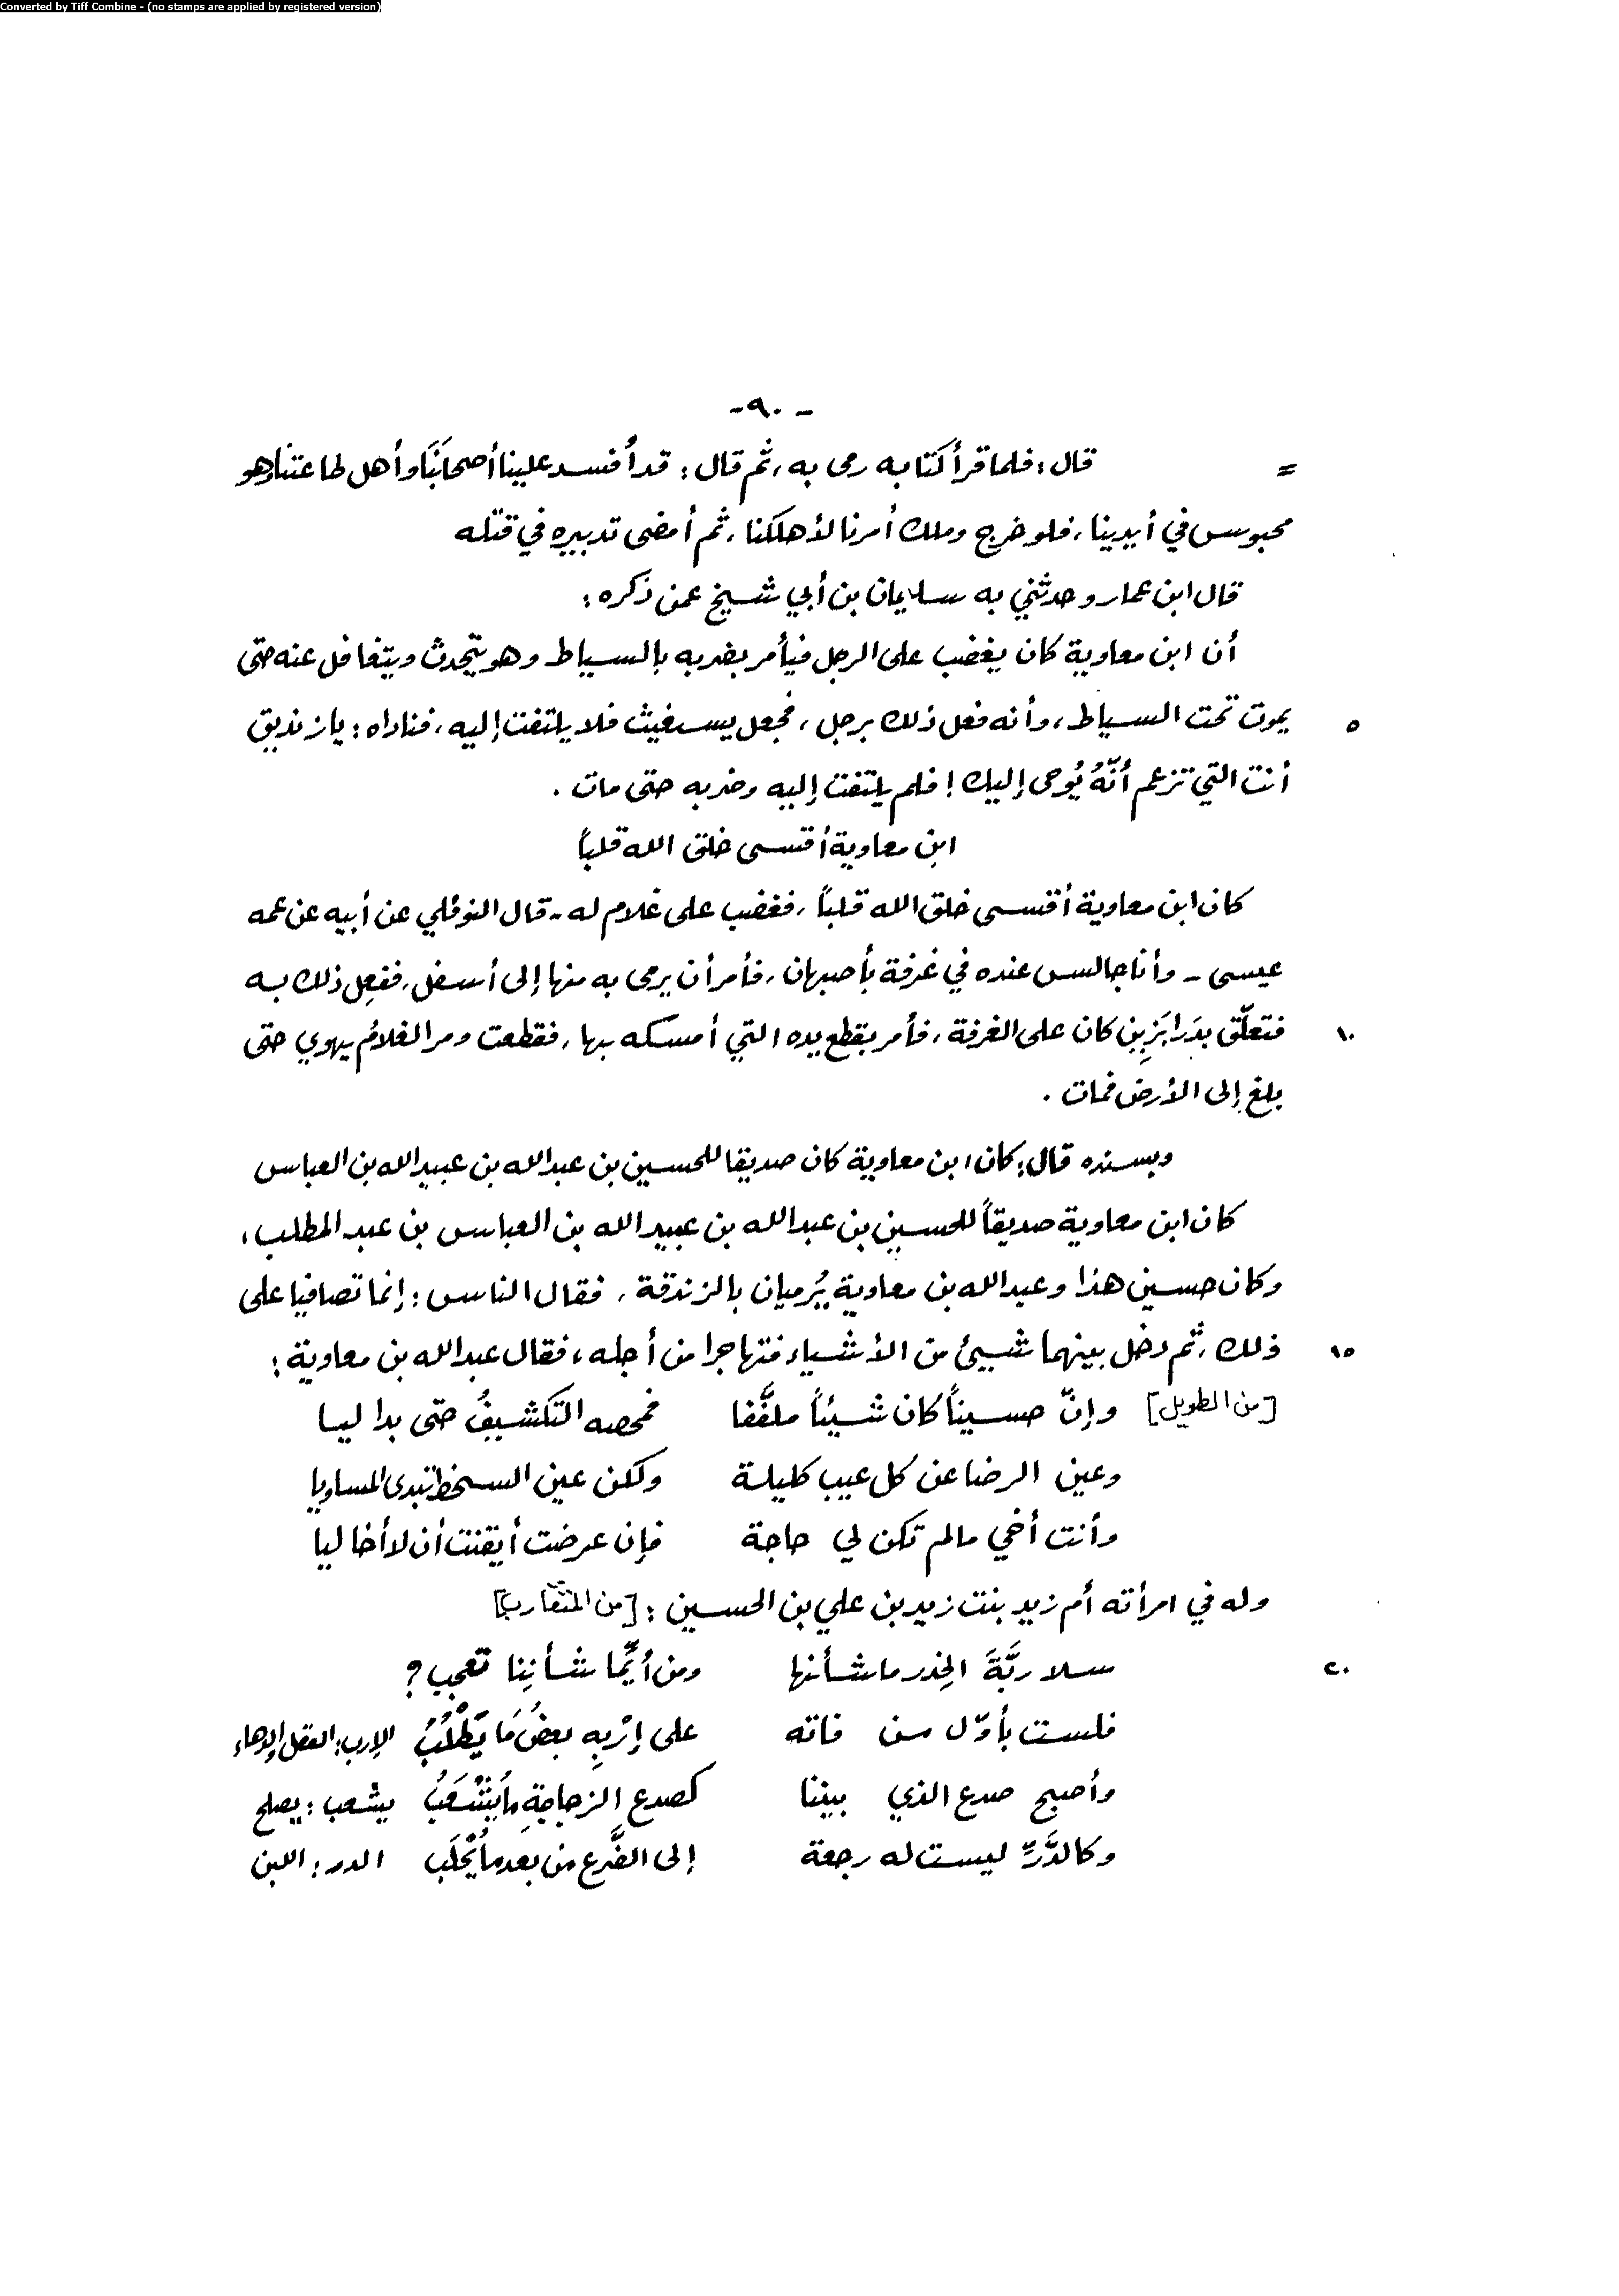 Converted by Tiff Combine - (no stamps are applied by registered version)
- ٩٠ -
= قال: فلما قرأ كتابه رمى به، ثم قال: قد أُفسد علينا أصحابَنَا وأهل طاعتنا وهو
محبوس في أيدينا، فلو خرج وملك أمرنا لأهلكنا، ثم أمضى تدبيره في قتله
قال ابن عمار وحدثني به سليمان بن أبي شيخ عمن ذكره:
أن ابن معاوية كان يغضب على الرجل فيأمر بضربه بالسياط وهو يتحدث ويتغافل عنه حتى
٥ يموت تحت السياط، وأنه فعل ذلك برجل، فجعل يستغيث فلا يلتفت إليه، فناداه: يا زنديق
أنت التي تزعم أنّهُ يُوحى إليك! فلم يلتفت إليه وضربه حتى مات.
ابن معاوية أقسى خلق الله قلباً
كان ابن معاوية أقسى خلق الله قلباً، فغضب على غلام له - قال النوفلي عن أبيه عن عمه
عيسى - وأنا جالس عنده في غرفة بأصبهان، فأمر أن يرمى به منها إلى أسفل، ففعِل ذلك به
١٠ فتعلّق بدَرابَزِين كان على الغرفة، فأمر بقطع يده التي أمسكه بها، فقطعت ومر الغلامُ يهوي حتى
بلغ إلى الأرض فمات.
وبسنده قال: كان ابن معاوية كان صديقا للحسين بن عبدالله بن عبيدالله بن العباس
كان ابن معاوية صديقاً للحسين بن عبدالله بن عبيدالله بن العباس بن عبد المطلب،
وكان حسين هذا وعبدالله بن معاوية يُرميان بالزندقة، فقال الناس: إنما تصافيا على
١٥ ذلك، ثم دخل بينهما شييئ من الأشياء فتهاجرا من أجله، فقال عبدالله بن معاوية:
[من الطويل] وإنّ حسيناً كان شيئاً ملفَّفا فمحصه التكشيفُ حتى بدا ليا
وعين الرضا عن كل عيب كليلة ولكن عين السخط تبدى المساويا
وأنت أخي مالم تكن لي حاجة فإن عرضت أيقنت أن لا أخا ليا
وله في امرأته أم زيد بنت زيد بن علي بن الحسين: [من المتقارب]
٢٠ سلا ربَّةَ الخِدر ما شأنها ومن أيِّما شأنِنا تعجب؟
فلست بأوّل من فاته على إرْبِهِ بعضُ مَا يَطْلُبُ الإرب: العقل والدهاء
وأصبح صدع الذي بيننا كصدع الزجاجةِ ما يَشْعَبُ يشعب: يصلح
وكالدَّرِّ ليست له رجعة إلى الضَّرع من بعد ما يُحْلَب الدر: اللبن